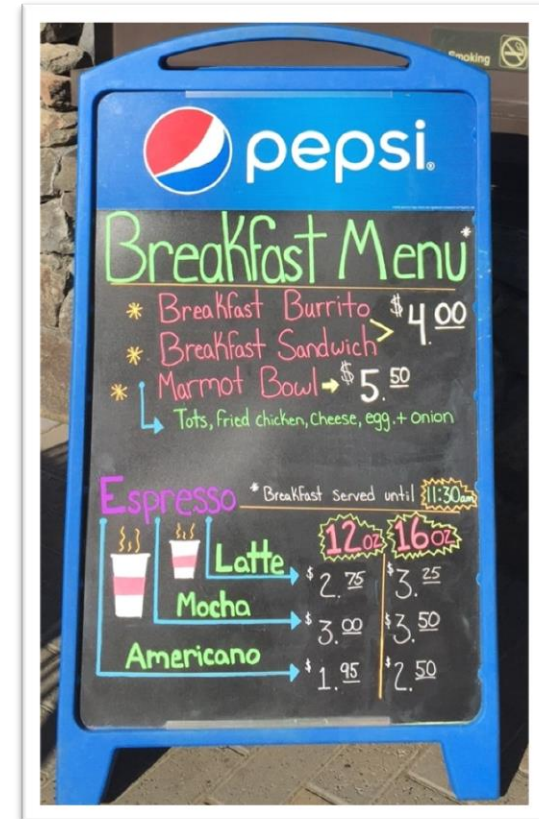 Smoking
pepsi.
Breakfast Menu*
* Breakfast Burrito
* Breakfast Sandwich > $4.00
* Marmot Bowl → $5.50
Tots, fried chicken, cheese, egg.+ onion
Espresso * Breakfast served until 11:30am
12oz 16oz
Latte $2.75 $3.25
Mocha $3.00 $3.50
Americano $1.95 $2.50